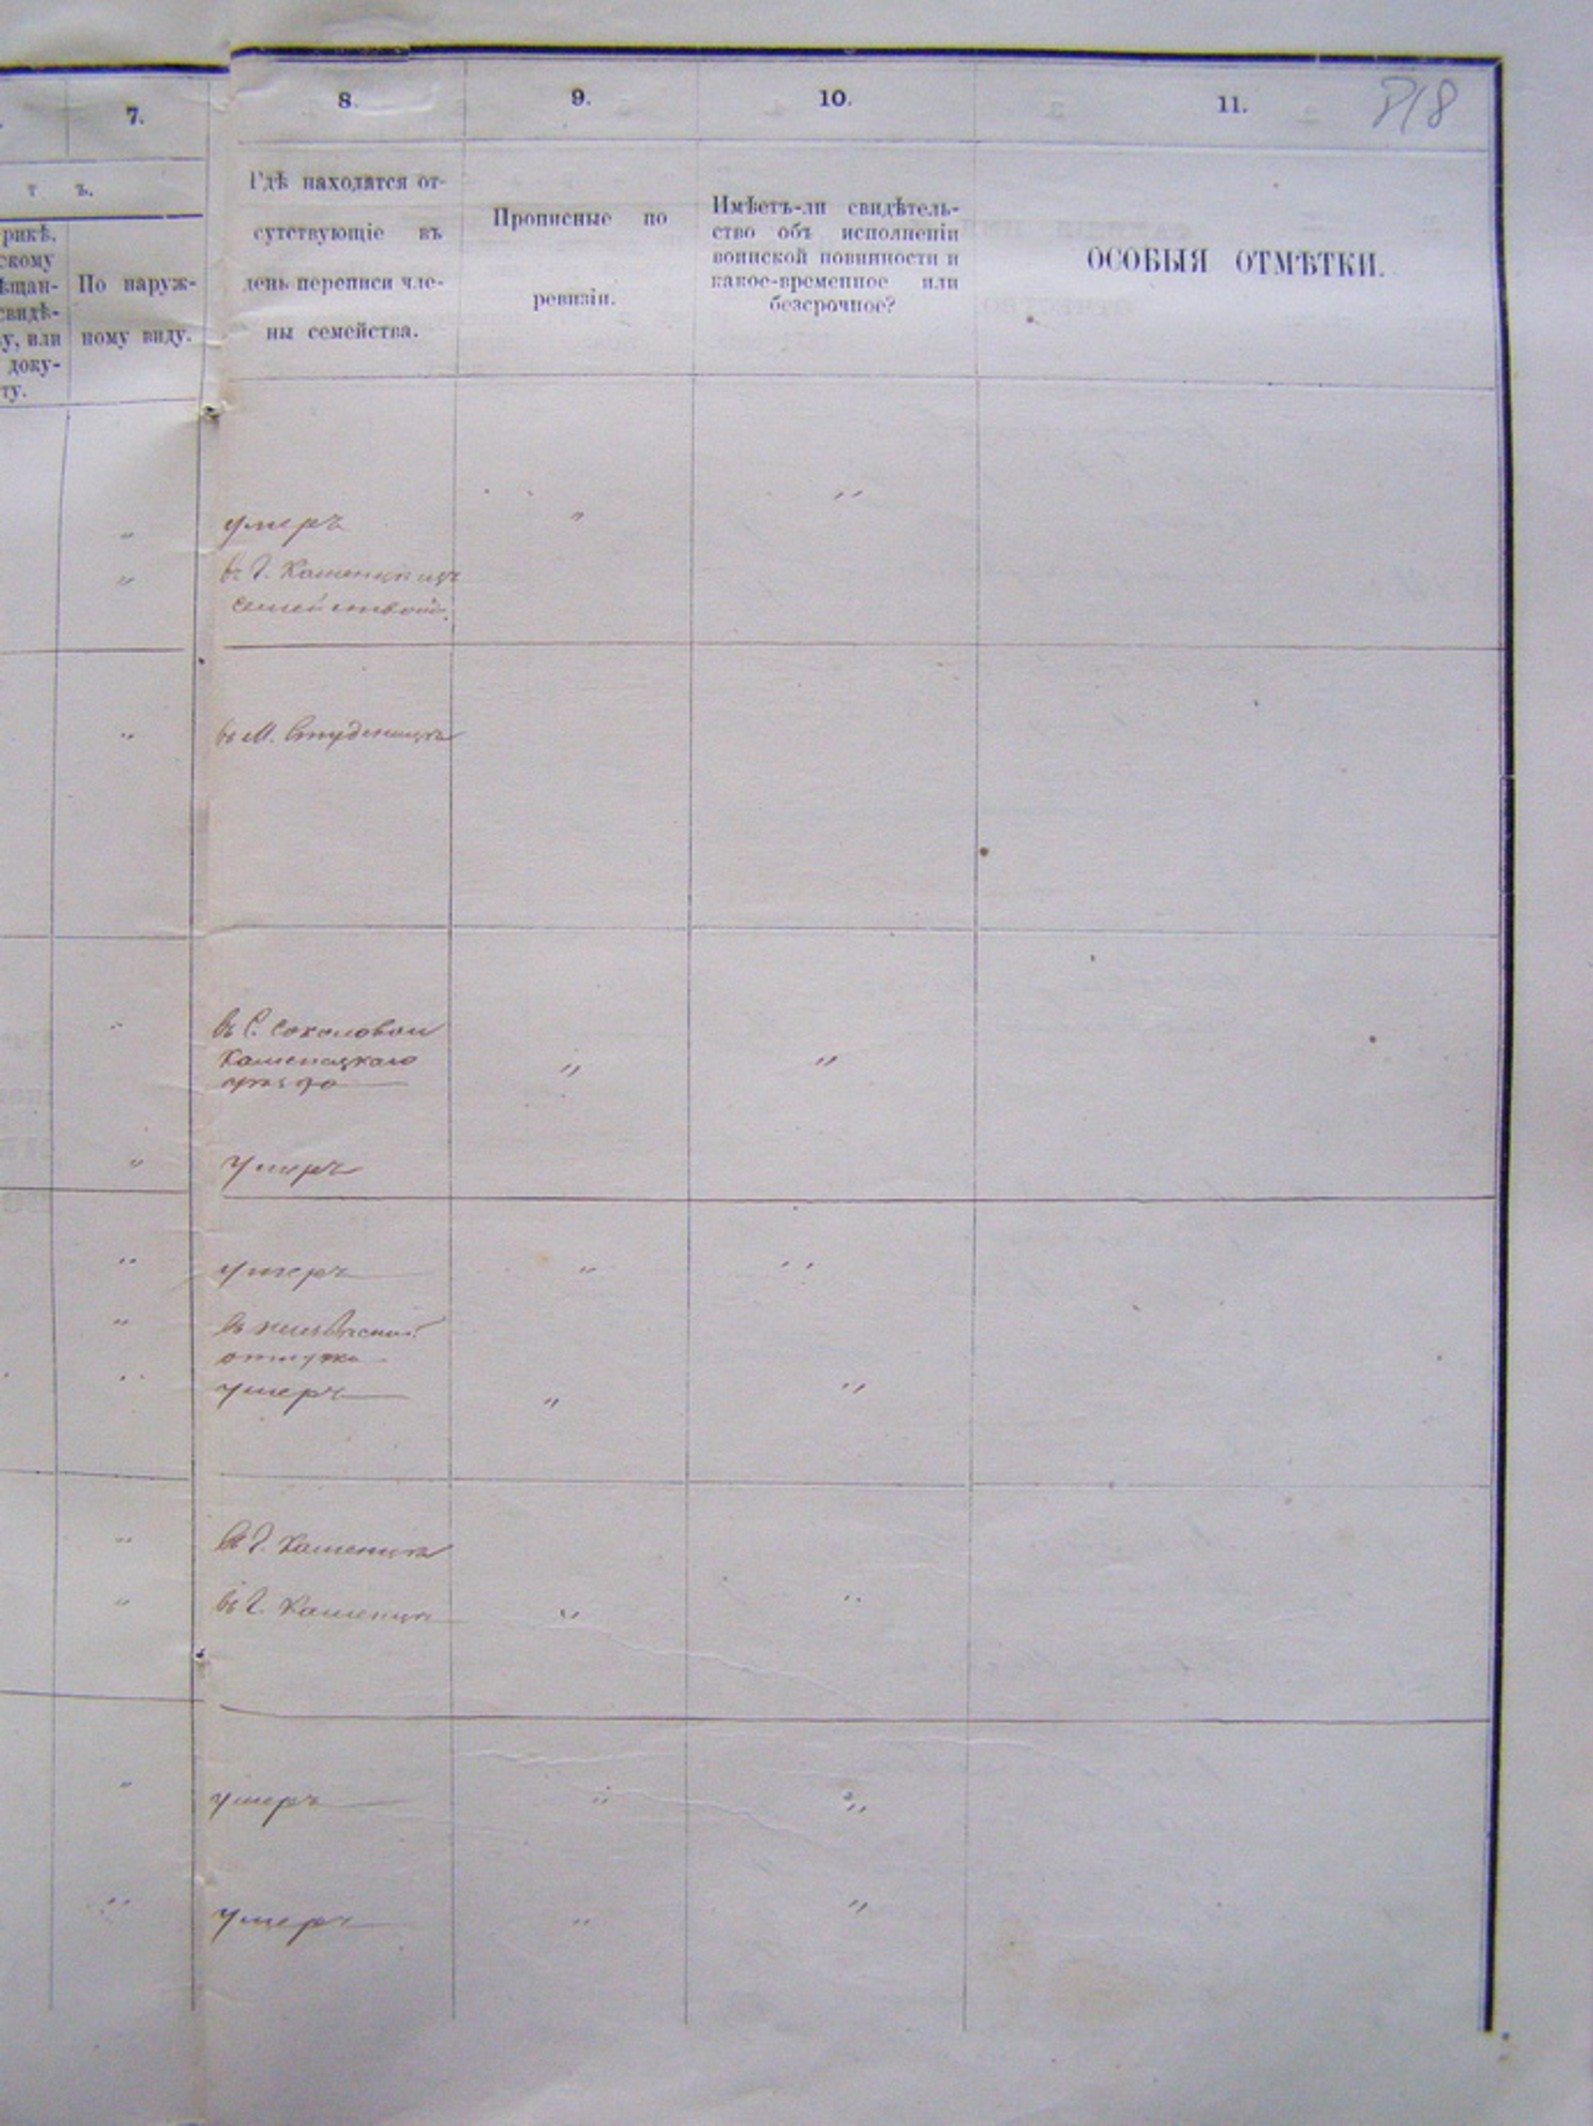 7.
8.
9.
10.
11.
т ъ.
рикѣ.
скому
ѣщан-
свидѣ-
у, или
доку-
ту.
По наруж-
ному виду.
Гдѣ находятся от-
сутствующіе въ
день переписи чле-
ны семейства.
Прописные по
ревизіи.
Имѣетъ-ли свидѣтель-
ство объ исполненіи
воинской повинности и
какое-временное или
безсрочное?
ОСОБЫЯ ОТМѢТКИ.
" умеръ " "
" въ г. Каменцѣ
" въ М. Студеницѣ
" въ С. Соколовки
Каменецкаго " "
уѣзда
" Умеръ
" умеръ " "
" въ неизвѣстной
отлучкѣ
" умеръ " "
" въ г. Каменцѣ
" въ г. Каменцѣ " "
" умеръ " "
" умеръ " "